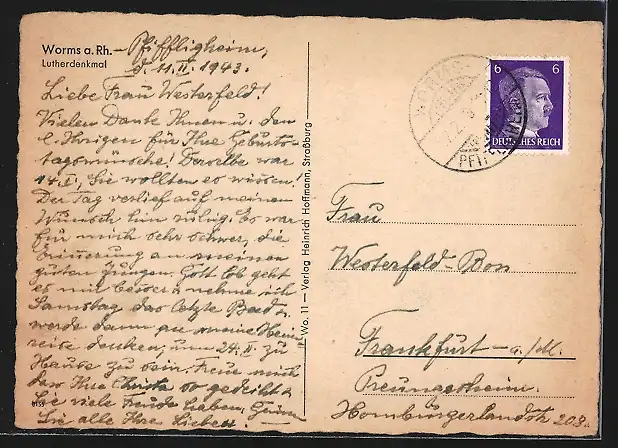 Worms a. Rh. – Pfiffligheim,
Lutherdenkmal
d. 11. II. 1943.
Liebe Frau Westerfeld!
Vielen Dank Ihnen u. den
l. Ihrigen für Ihre Geburts-
tagswünsche! Derselbe war
14. I., Sie wollten es wissen!
Der Tag verlief auf meinen
Wunsch hin ruhig. Es war
für mich sehr schwer, die
Erinnerung an meinen
guten Jungen. Gott Lob geht
es mir besser u. nehme ich
Samstag das letzte Bad u.
werde dann an meine Heim
reise denken, um 24. II. zu
Hause zu sein. Freue mich
dass Ihre Christa so gedeiht u.
Sie viele Freude haben. Grüsse
Sie alle Ihre Lieben!
Wo. 11 — Verlag Heinrich Hoffmann, Straßburg
6 6
DEUTSCHES REICH
WORMS
PFIFFLIGHEIM
Frau
Westerfeld-Bon
Frankfurt – a./M.
Preungesheim.
Homburgerlandstr. 208.